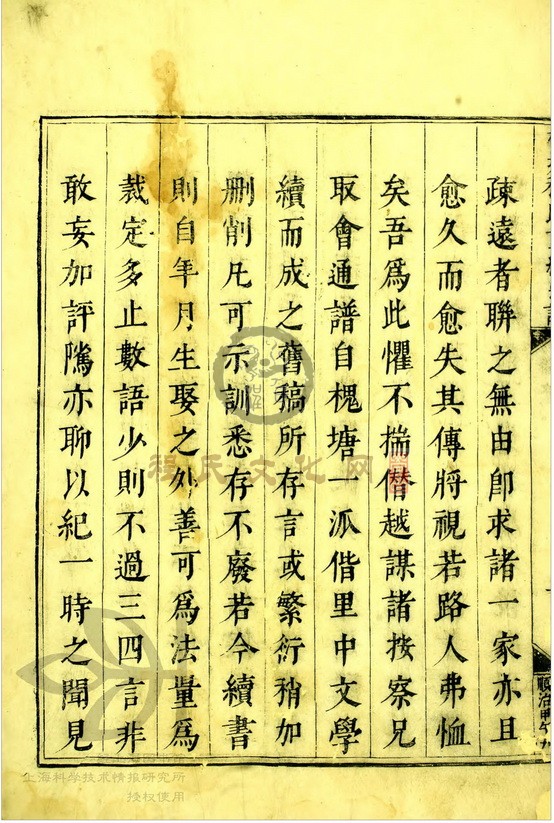 疎遠者聯之無由卽求諸一家亦且
愈久而愈失其傳將視若路人弗恤
矣吾爲此懼不揣僭越謀諸按察兄
取會通譜自槐塘一派偕里中文學
續而成之舊稿所存言或繁衍稍加
删削凡可示訓悉存不廢若今續書
則自年月生娶之外善可爲法量爲
裁定多止數語少則不過三四言非
敢妄加評隲亦聊以紀一時之聞見
順治甲午
程氏文化网
上海科学技术情报研究所
授权使用